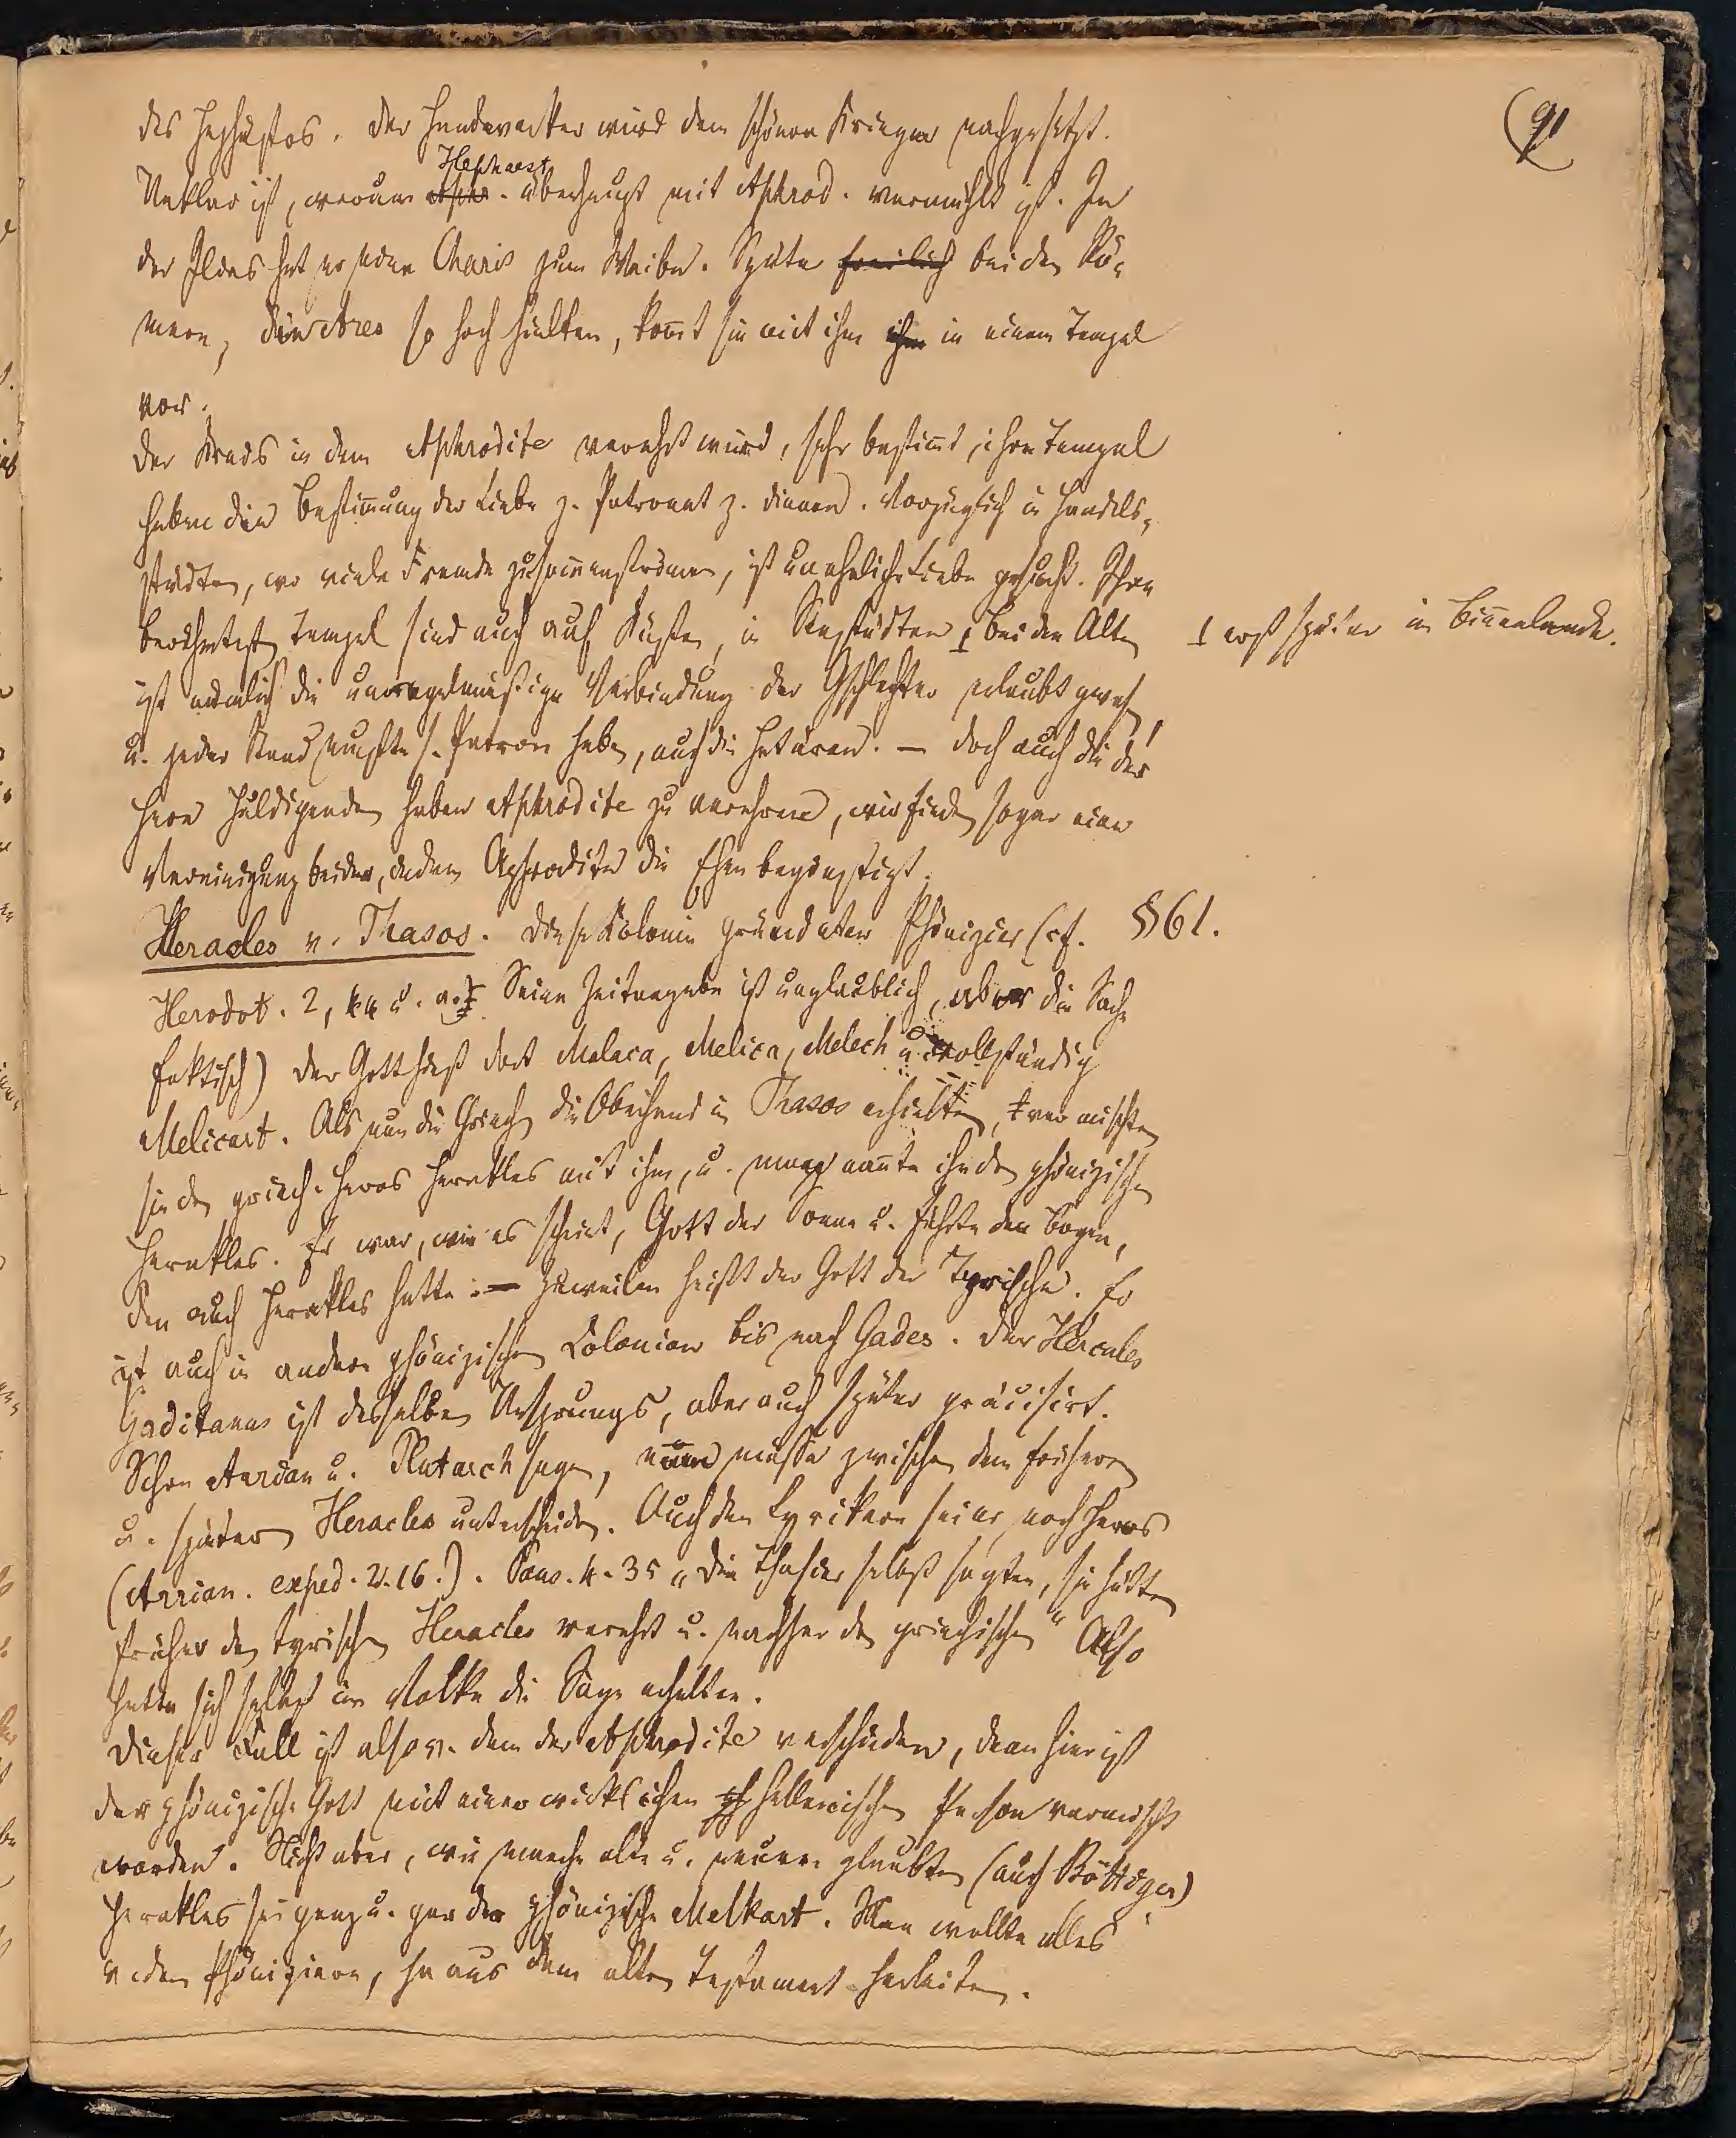 91
des Hephästos. Der Handwerker wird dem schönen Krieger nachgesetzt.
Unklar ist, warum Hephaest. überhaupt mit Aphrod. vermählt ist. In
der Ilias hat er schon Charis zum Weibe. Später freilich bei den Rö-
mern, die Ares so hoch hielten, kommt sie mit ihm ihm in einem Tempel
vor.
Der Kreis in dem Aphrodite verehrt wird, sehr bestimmt, ihre Tempel
haben die Bestimmung der Liebe z. Patronat z. dienen. Vorzüglich in Handels-
städten, wo viele Fremde zusammenströmen, ist unehliche Liebe gesucht. Ihre
berühmtesten Tempel sind auch auf Küsten, in Seestädten ⊥ bei den Alten
⊥ erst später im Binnenlande.
ist nämlich die unregelmäßige Verbindung der Geschlechter erlaubt gewesen,
u. jeder Stand mußte s. Patron haben, auch die Hetären. — Doch auch die der
Here huldigenden haben Aphrodite zu verehren, wir finden sogar eine
Vereinigung beider, indem Aphrodite die Ehen begünstigt.
Heracles v. Thasos. Diese Kolonie gründeten Phönizier (cf. §61.
Herodot. 2, 44 u. a. Seine Zeitangabe ist unglaublich, aber die Sache
faktisch) Der Gott hieß dort Malaca, Melica, Melech u. vollständig
Melicart. Als nun die Griechen die Oberhand in Thasos erhielten, vermischten
sie den griech. Heros Herakles mit ihm, u. man nannte ihn den phönizischen
Herakles. Er war, wie es scheint, Gott der Sonne u. führte den Bogen,
den auch Herakles hatte. — Zuweilen heißt der Gott der Tyrische. Er
ist auch in andern phönizischen Colonien bis nach Gades. Der Hercules
Gaditanus ist desselben Ursprungs, aber auch später gräcisirt.
Schon Arrian u. Plutarch sagen, man müsse zwischen dem frühern
u. spätern Heracles unterscheiden. Auch den Lyrikern sei er noch Heros
(Arrian. exped. 2.16.). Paus. 4. 35 „die Thasier selbst sagten, sie hätten
früher den tyrischen Heracles verehrt u. nachher den griechischen“ Also
hatte sich selbst im Volke die Sage erhalten.
Dieser Fall ist also v. dem der Aphrodite verschieden, denn hier ist
der phönizische Gott mit einer wirklichen hellenischen Person vermischt
worden. Nicht aber, wie manche alte u. neuere glaubten (auch Böttiger)
Herakles sei ganz u. gar der phönizische Melkart. Man wollte alles
v. den Phöniziern, ja aus dem alten Testament herleiten.